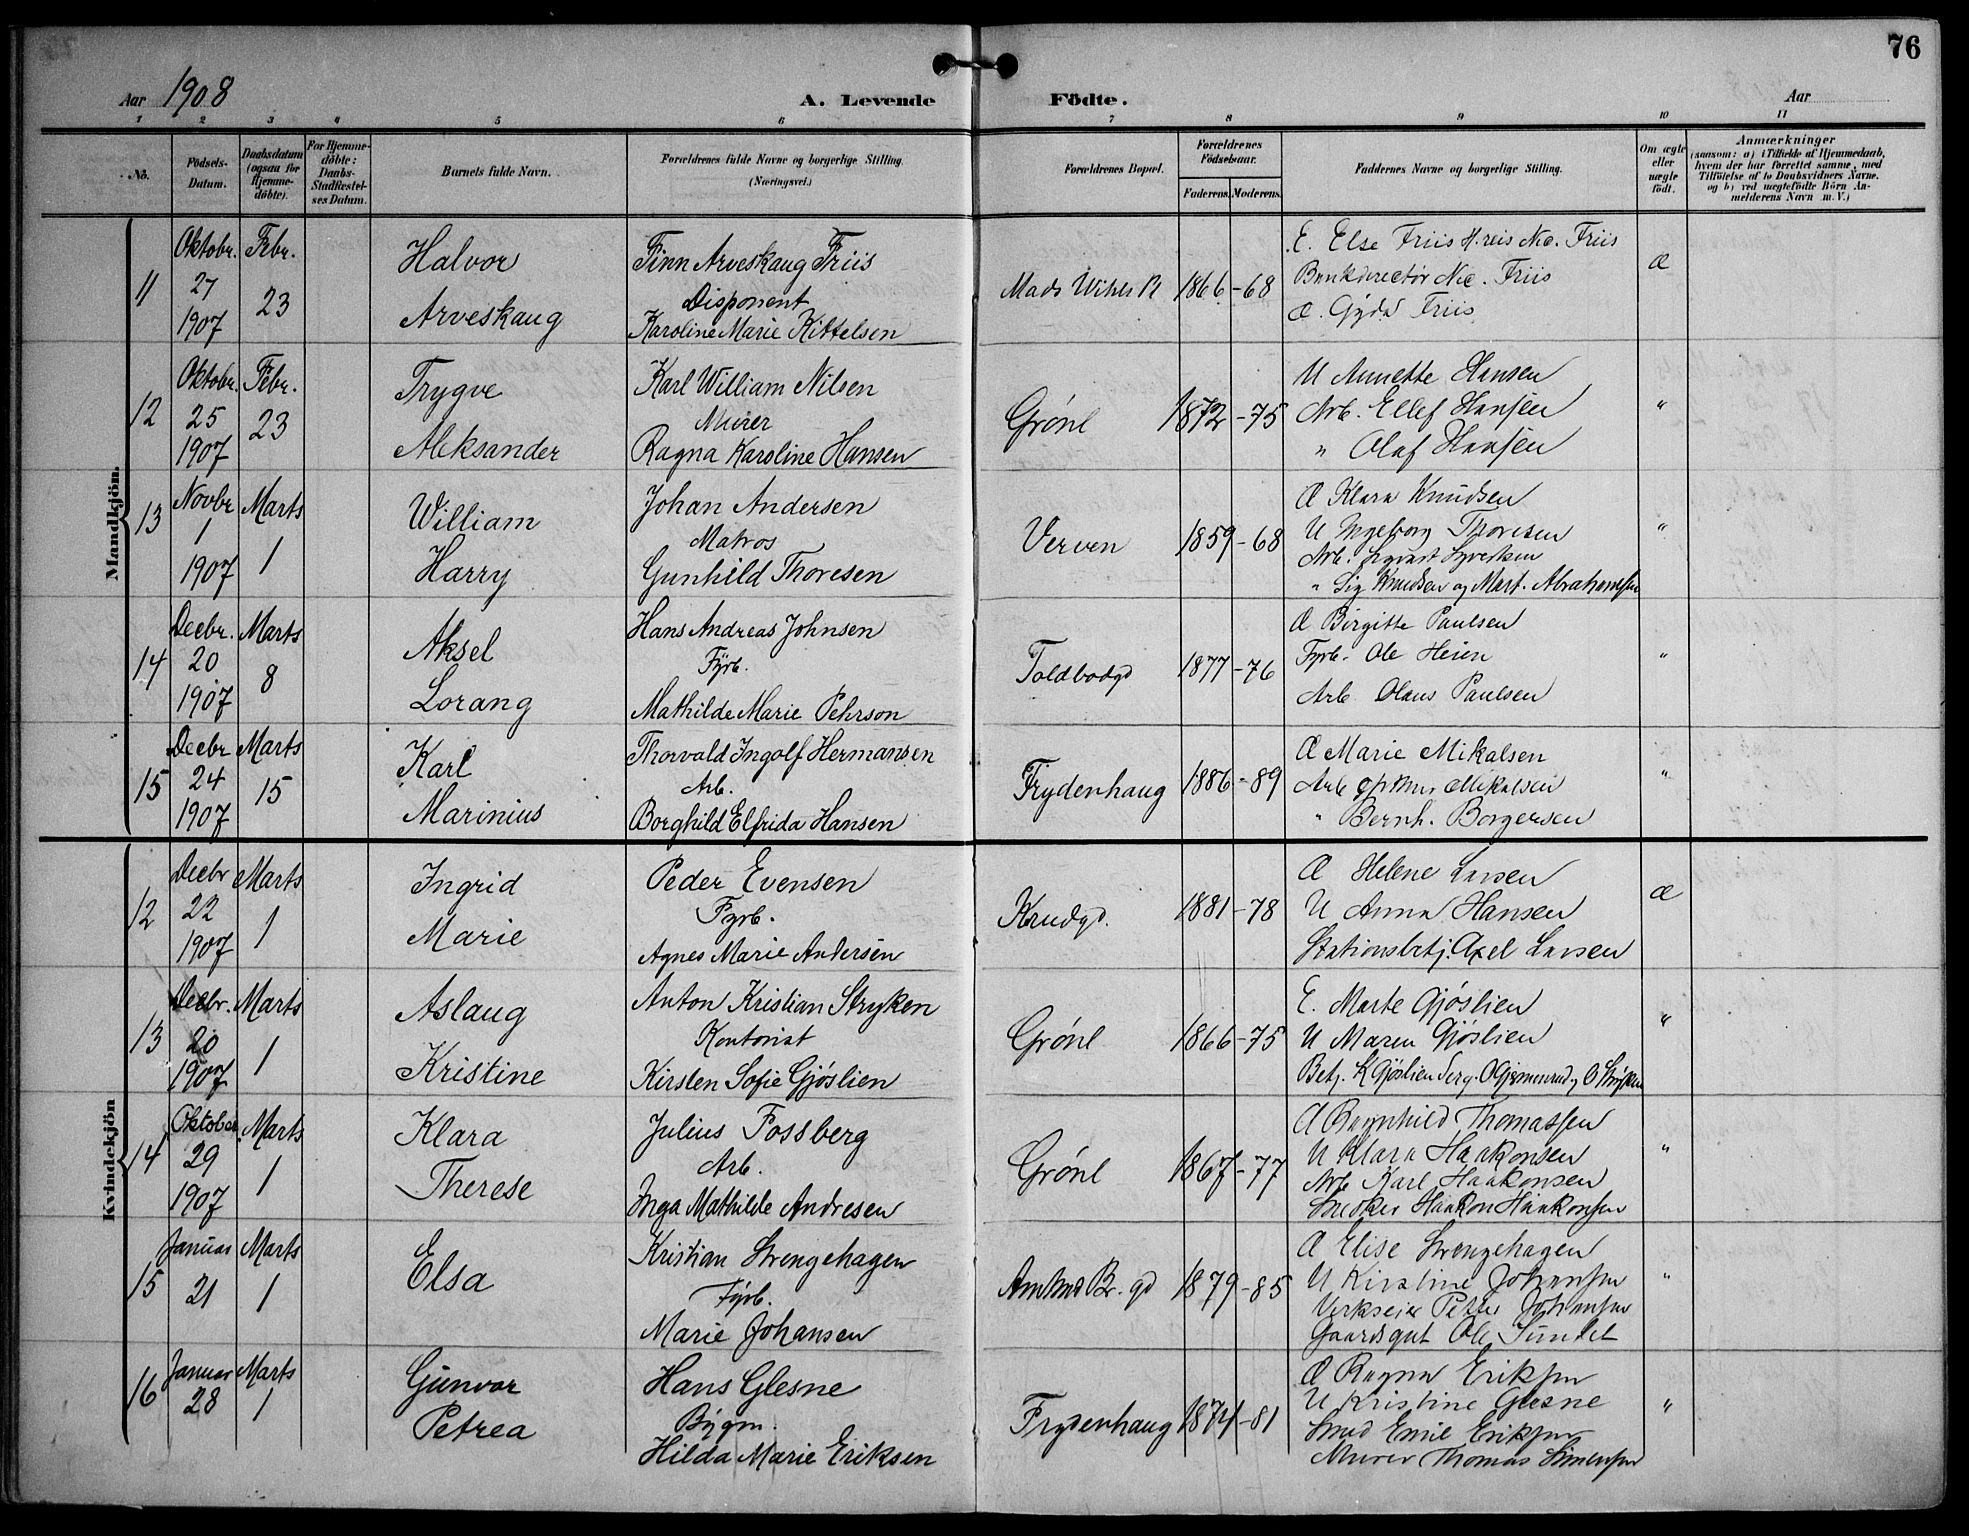 76
Aar 1908
A. Levende Födte.
Aar
1 2 3 4 5 6 7 8 9 10 11
No.
Födsels-Datum.
Daabsdatum (ogsaa for Hjemmedöbte).
For Hjemmedöbte: Daabs-Stadfæstelses Datum.
Barnets fulde Navn.
Forældrenes fulde Navne og borgerlige Stilling. (Næringsvei.)
Forældrenes Bopæl.
Forældrenes Födselsaar.
Faderens. Moderens.
Faddernes Navne og borgerlige Stilling.
Om ægte eller uægte födt.
Anmærkninger
(saasom: a) i Tilfælde af Hjemmedaab, hvem der har forrettet samme, med Tilföielse af to Daabsvidners Navne. og b) ved uægtefödte Börn Anmelderens Navn m. V.)
Mandkjön.
11 Oktobr. 27 1907 Febr. 23
Halvor Arveskaug
Finn Arveskaug Friis
Disponent
Karoline Marie Kittelsen
1866 - 68
E. Else Friis
Bankdirectør Nic. Friis
Æ. Gyda Friis
Æ
12 Oktobr. 25 1907 Febr. 23
Trygve Aleksander
Karl William Nilsen
Murer
Ragna Karoline Hansen
Grönl 1872 - 75
U Annette Hansen
Arb. Ellef Hansen
" Olaf Hansen
"
13 Novbr 1 1907 Marts 1
William Harry
Johan Andersen
Matros
Gunhild Thoresen
Verven 1859 - 68
Æ Klara Knudsen
U Ingeborg Thoresen
Arb.
" Sig Knudsen og Mart. Abrahamsen
"
14 Decbr. 20 1907 Marts 8
Aksel Lorang
Hans Andreas Johnsen
Fyrb.
Mathilde Marie Pehrson
Toldbodgd 1877 - 76
Æ Birgitte Paulsen
Fyrb. Ole Heien
Arb Olaus Paulsen
"
15 Decbr 24 1907 Marts 15
Karl Marinius
Thorvald Ingolf Hermansen
Arb.
Borghild Elfrida Hansen
Frydenhaug 1886 - 89
Æ Marie Mikalsen
Arb Mikalsen
" Bernh. Borgersen
"
Kvindekjön
12 Decbr 22 1907 Marts 1
Ingrid Marie
Peder Evensen
Fyrb.
Agnes Marie Andersen
Krudgd. 1881 - 78
Æ Helene Larsen
U Anna Hansen
Stationsbetj. Axel Larsen
Æ
13 Decbr. 20 1907 Marts 1
Aslaug Kristine
Anton Kristian Stryken
Kontorist
Kirsten Sofie Gjöslien
Grönl 1866 - 75
E. Marte Gjöslien
U Maren Gjöslien
Betj. K Gjöslien
"
14 Oktober 29 1907 Marts 1
Klara Therese
Julius Fossberg
Arb.
Inga Mathilde Andresen
Grönl 1867 - 77
Æ Thomassen
U Klara Haakonsen
Arb Karl Haakonsen
Snedker Haakon Haakonsen
"
15 Januar 21 Marts 1
Elsa
Kristian Strengehagen
Fyrb.
Marie Johansen
1879 - 85
Æ Elise Strengehagen
U Kirstine Johansen
Petter Johansen
Gaardsgut Ole Sundet
"
16 Januar 28 Marts 1
Gunvor Petrea
Hans Glesne
Bygm.
Hilda Marie Eriksen
Frydenhaug 1874 - 81
Æ Ragna Eriksen
U Kristine Glesne
Smed Emil Eriksen
Murer Thomas Simensen
"